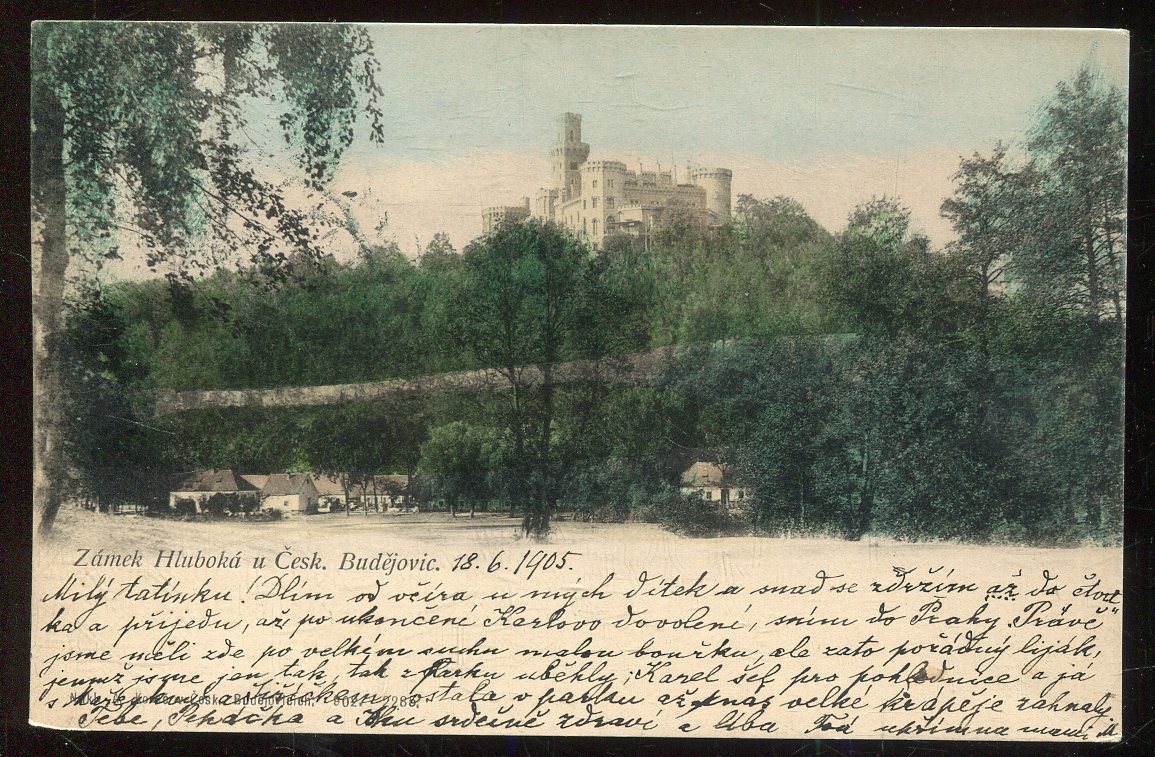 Zámek Hluboká u Česk. Budějovic. 18. 6. 1905.
Milý tatínku! Dlím od včíra u mých dítek a snad se zdržím až do čtvrt
ka a přijedu, až po ukončené Karlovo dovolení, s ním do Prahy. Právě
jsme měli zde po velkým suchu malou bouřku, ale zato pořádný liják,
jemuž jsme jen tak, tak z parku uběhly; Karel šel pro pohlednice a já
s ostala v parku až nás velké krápěje zahnaly
Tebe, a srdečně zdraví a líbá Tvá upřímna